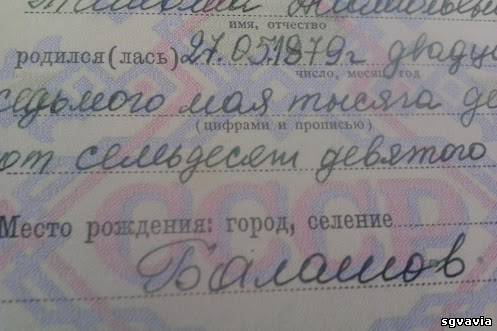 имя, отчество
родился(лась) 27.05.1879г двадца
число, месяц, год
седьмого мая тысяча де
(цифрами и прописью)
от семьдесят девятого
СССР
Место рождения: город, селение
Балашов
sgvavia